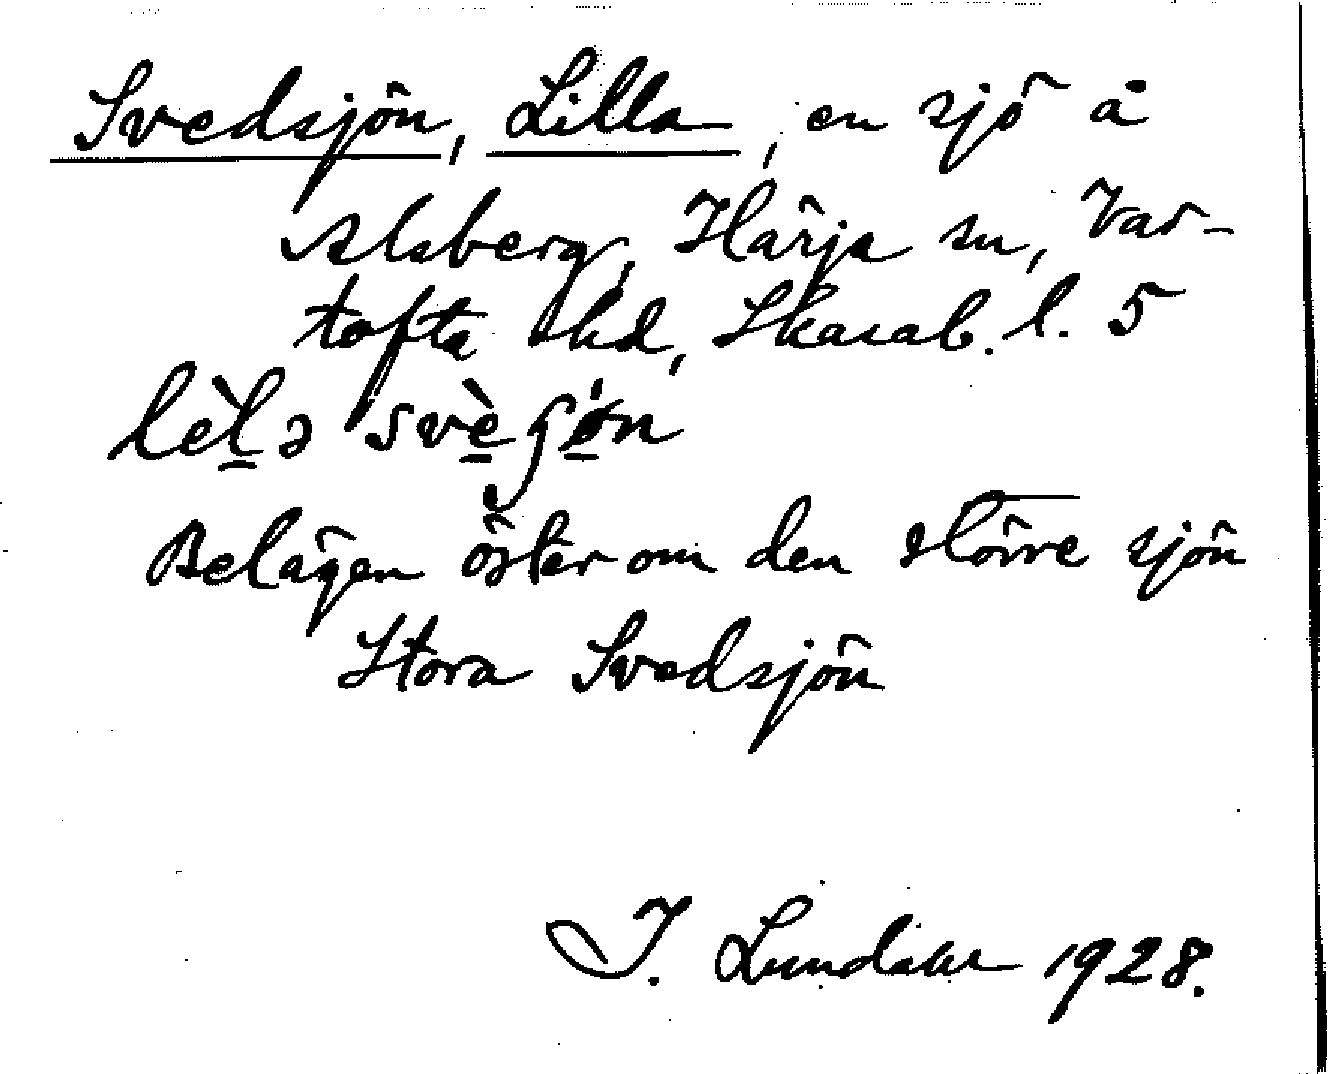 Svedsjön, Lilla, en sjö å
Alsberg, Härja sn, Var-
tofta hd, Skarab. l. 5
lèlə svèɡøn
Belägen öster om den större sjön
Stora Svedsjön
I. Lundahl 1928.